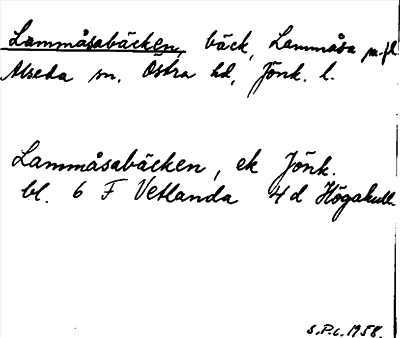 Lammåsabäcken, bäck, Lammåsa m.fl.
Alseda sn. Östra hd, Jönk. l.
Lammåsabäcken, ek Jönk.
bl. 6 F Vetlanda 4d Högakull.
S.P.c. 1958.